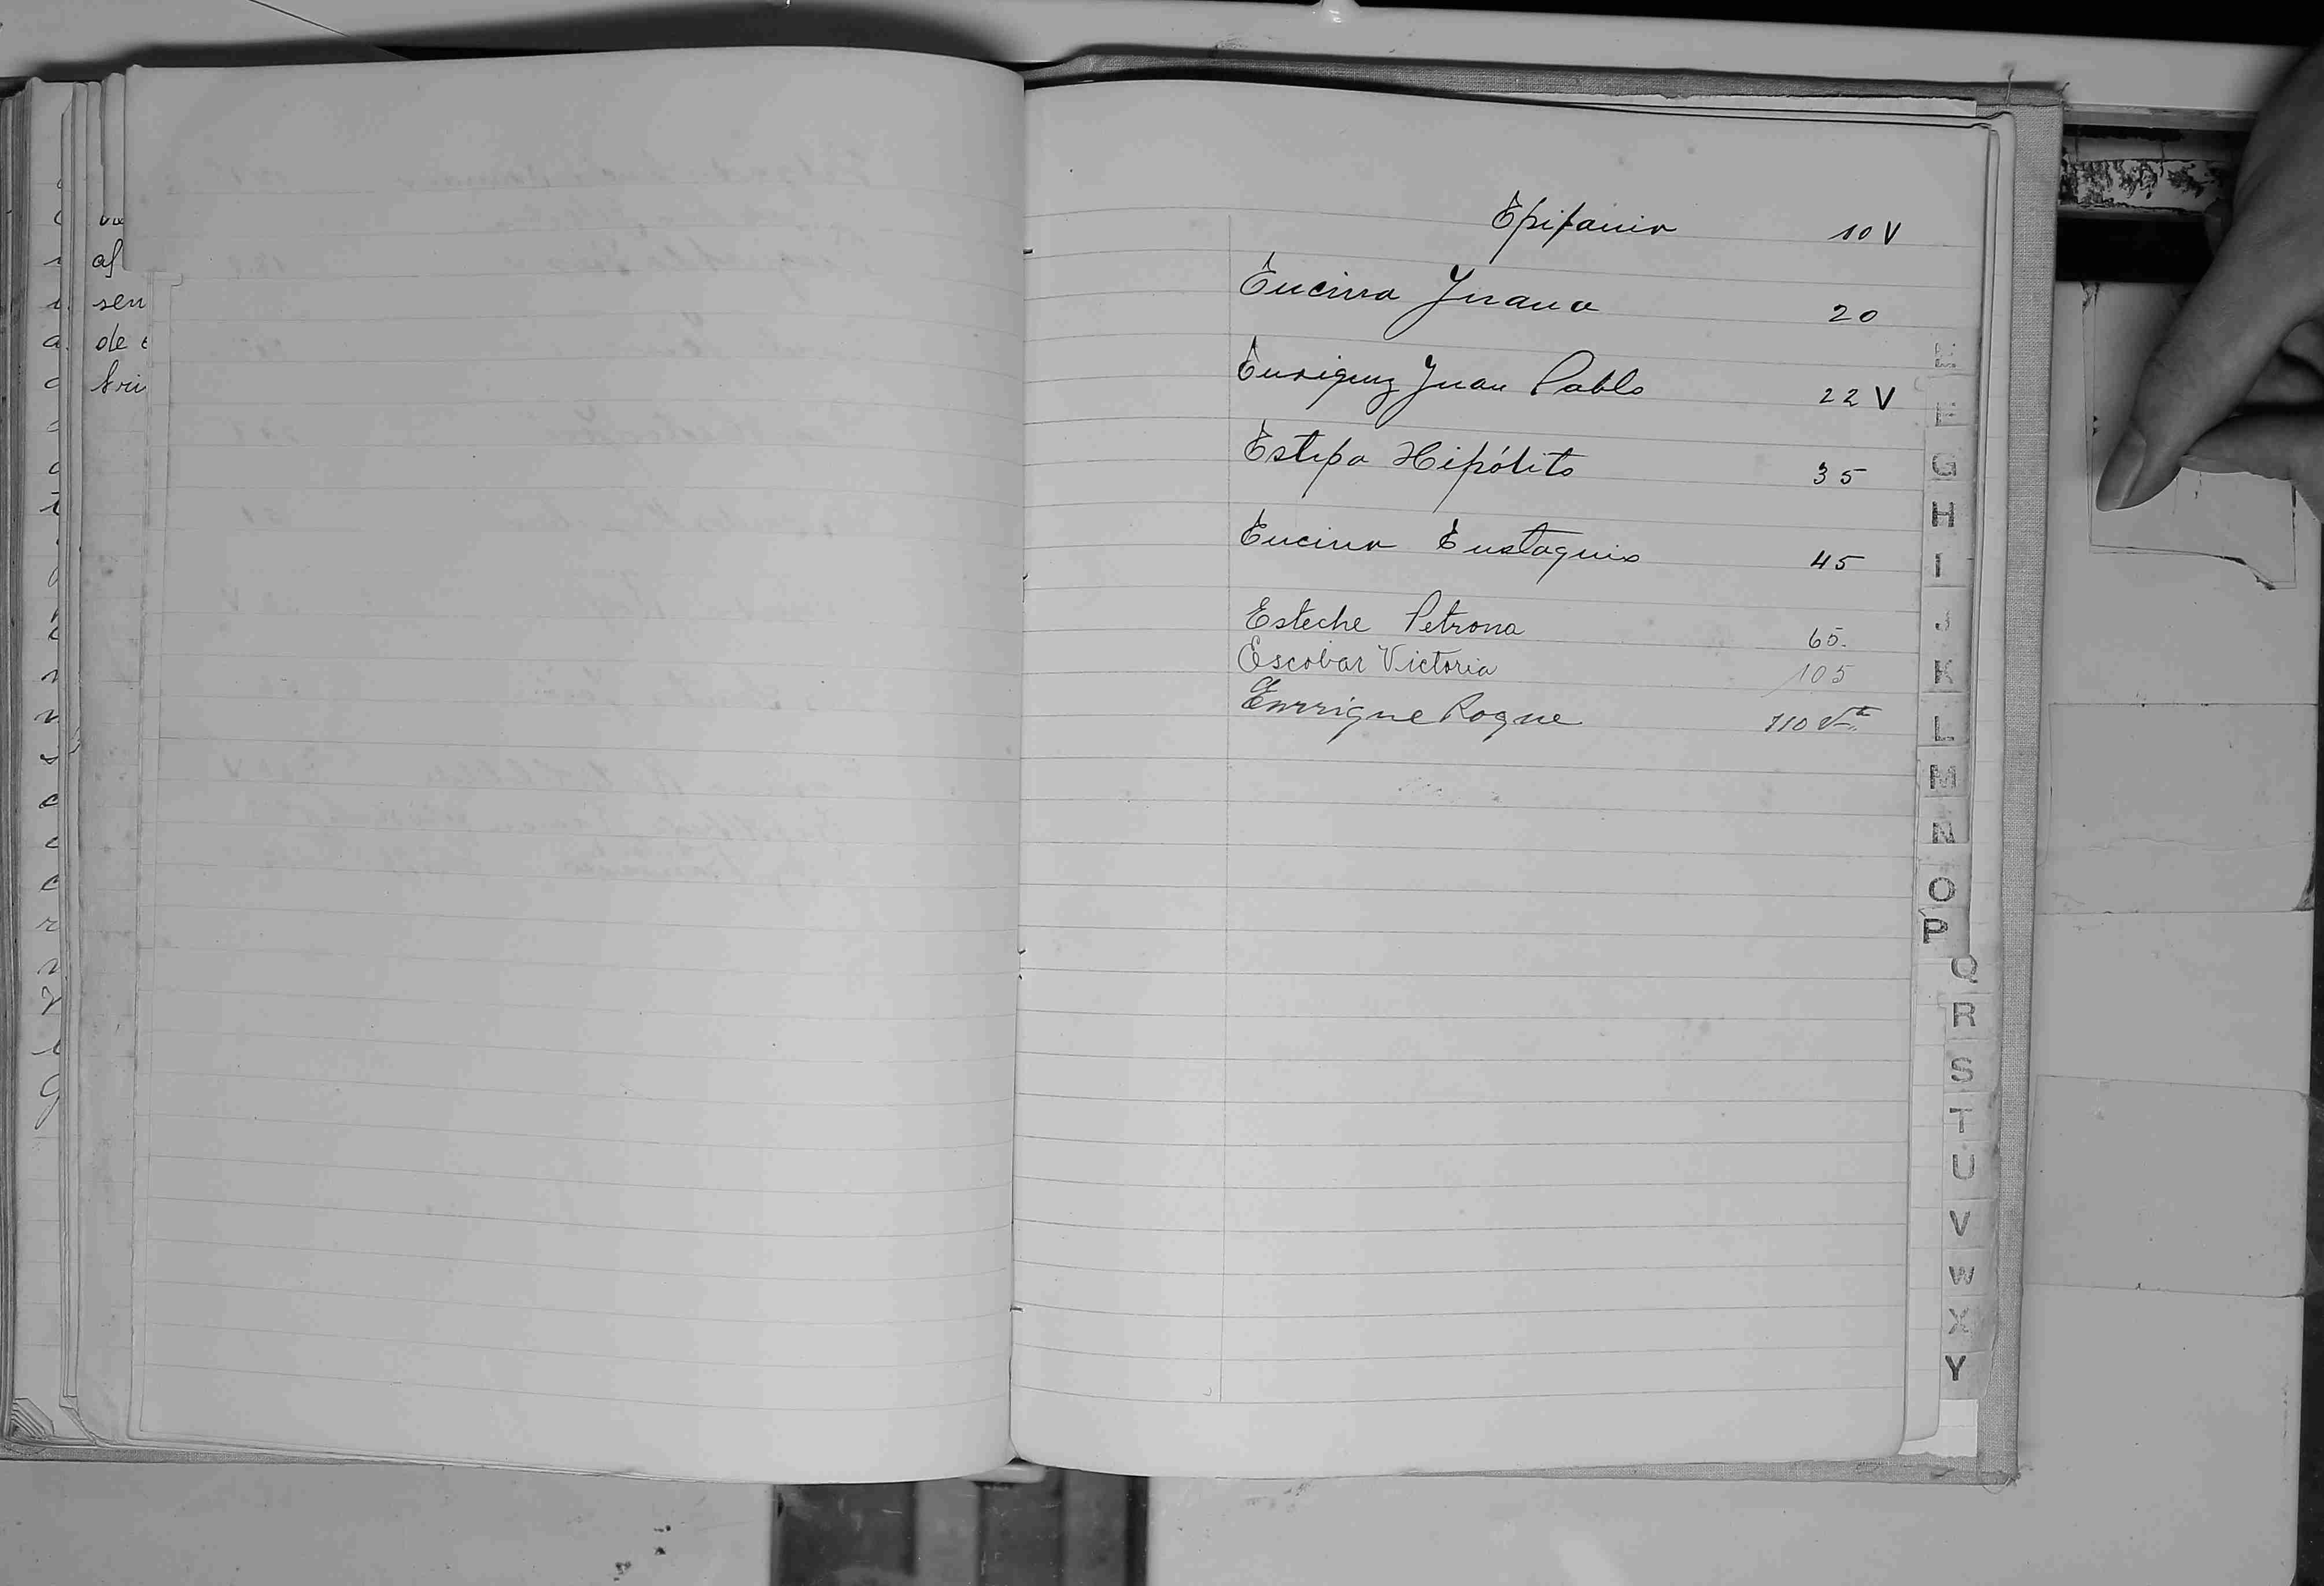 va
af
sen
de
Epifania 10 V
Encina Juana 20
Enriquez Juan Pablo 22 V
Estepa Hipólito 35
Encina Eustaquio 45
Esteche Petrona 65.
Escobar Victoria 105
Enrrique Roque 110 Vta
E
F
G
H
I
J
K
L
M
N
O
P
Q
R
S
T
U
V
W
X
Y